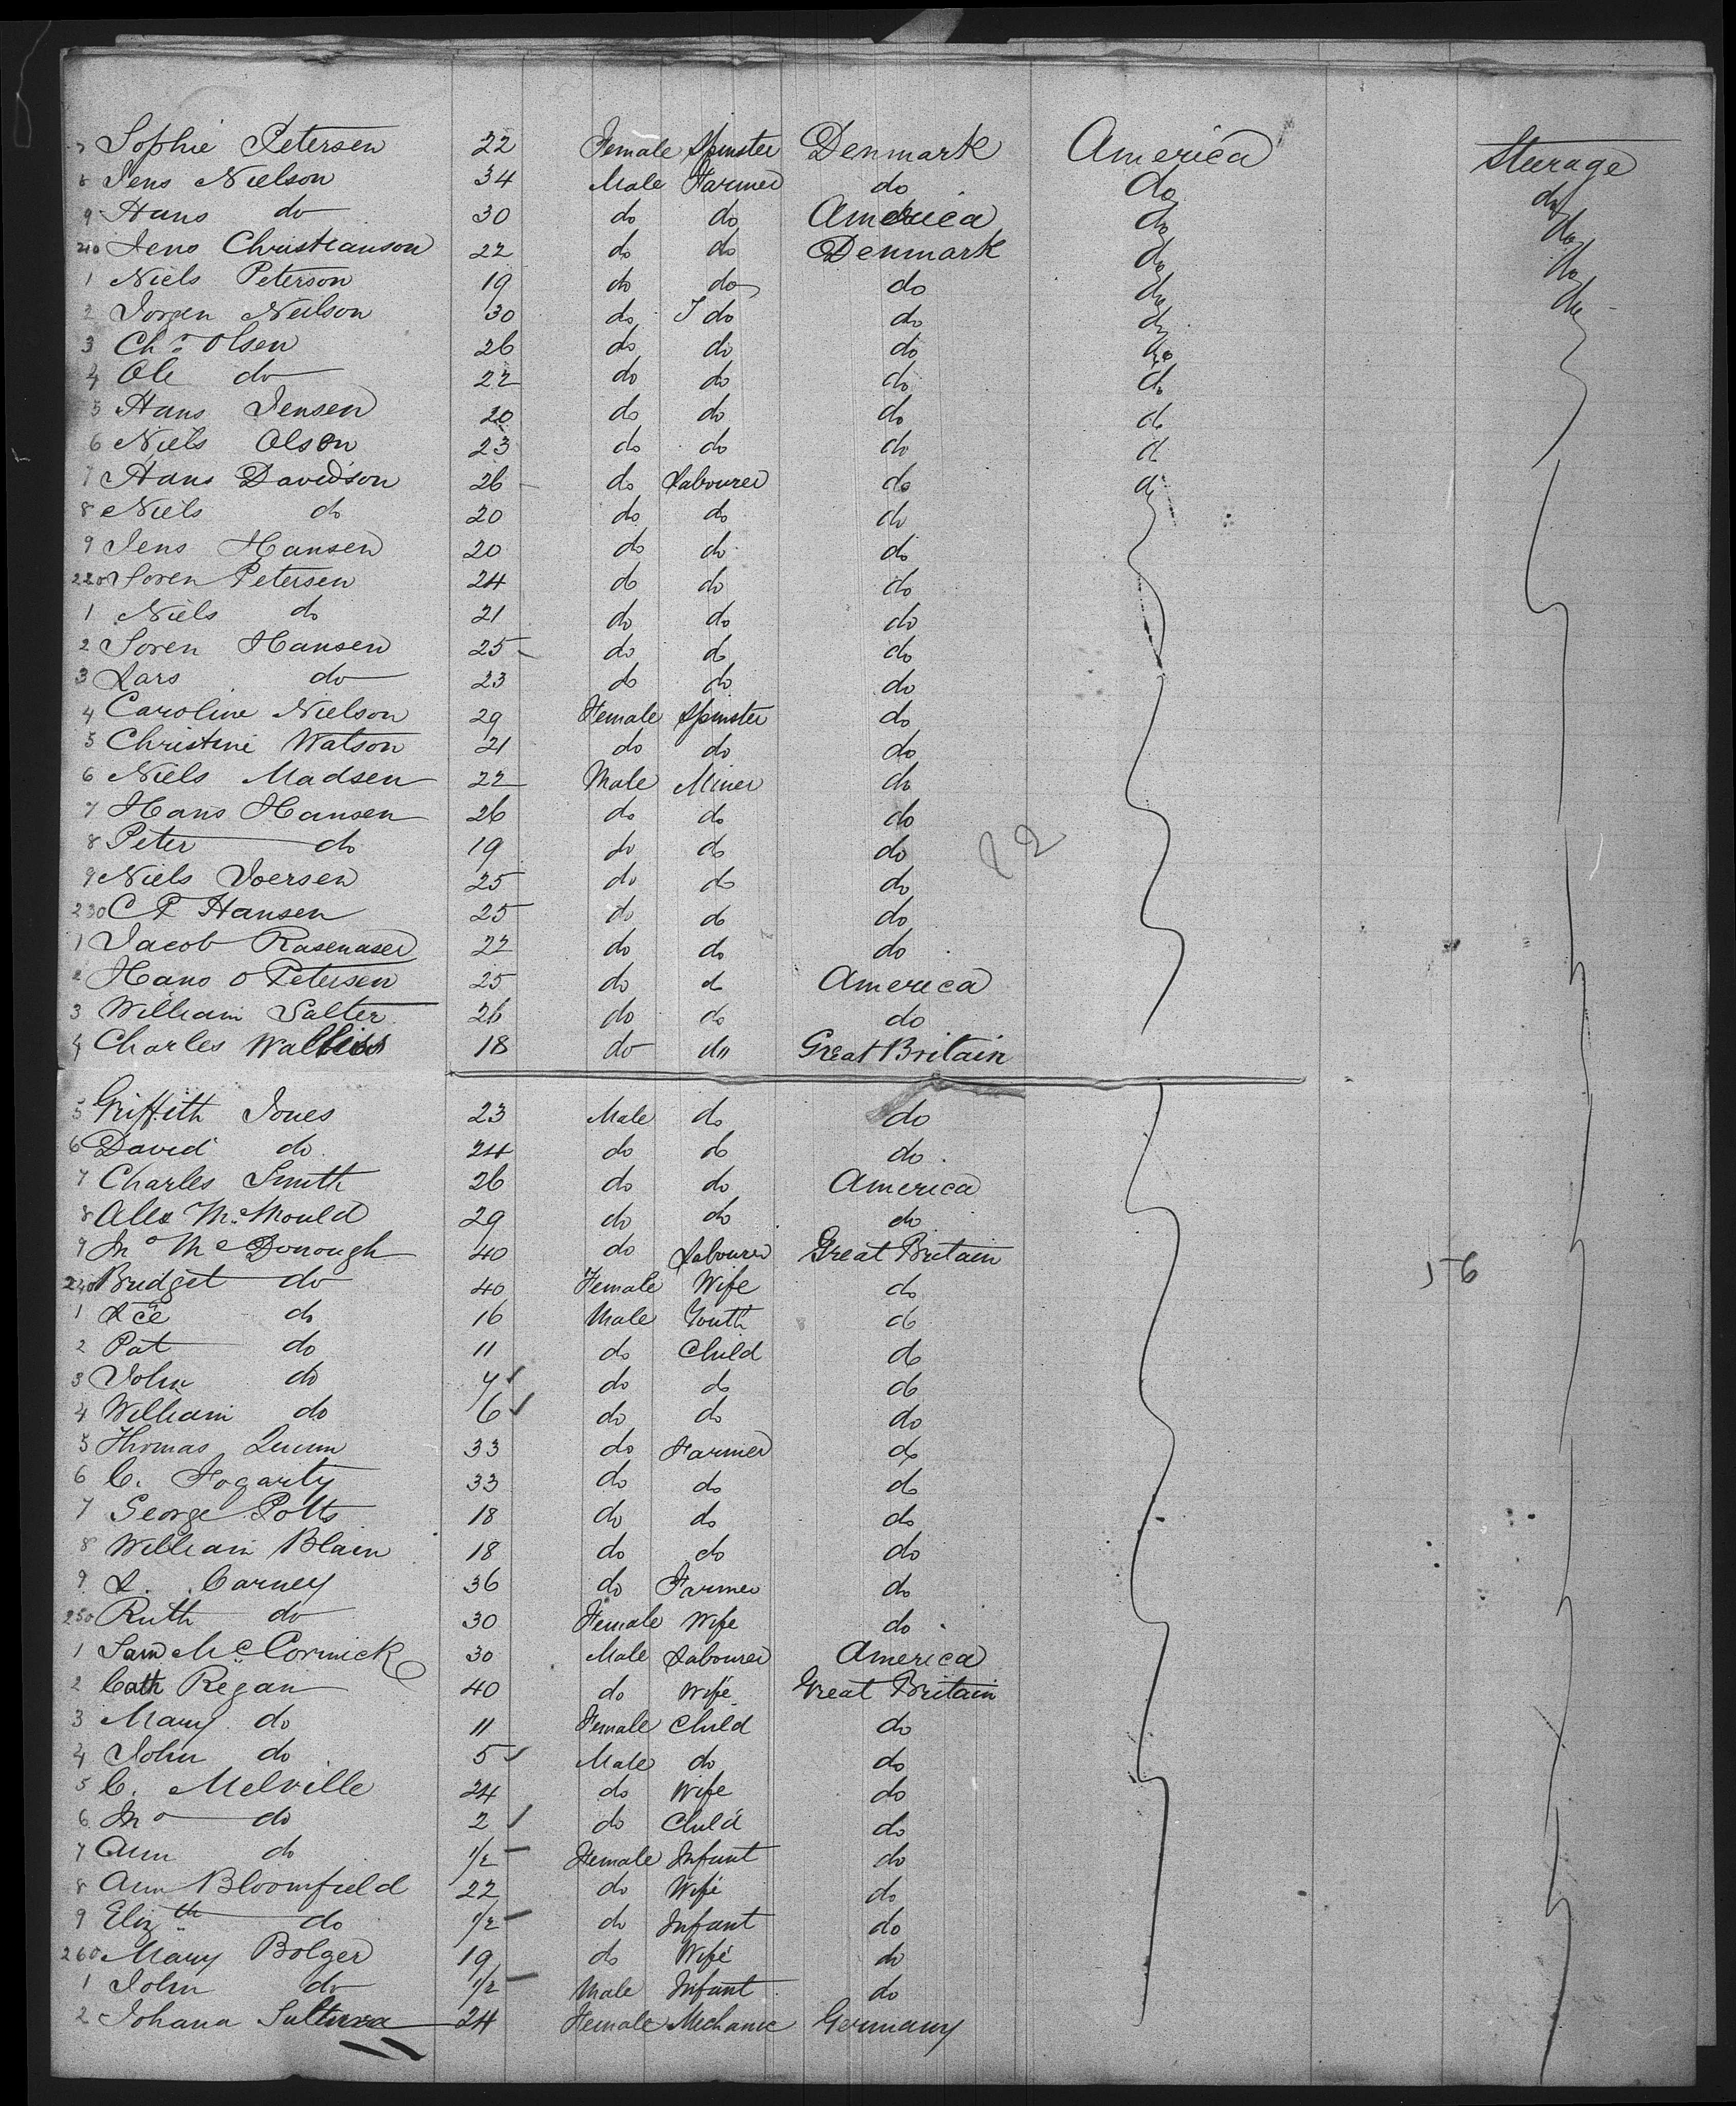 7 Sophie Petersen 22 Female Spinster Denmark America Steerage
8 Jens Nielson 34 Male Farmer do do do
9 Hans do 30 do do America do do
210 Jens Christianson 22 do do Denmark do do
1 Niels Peterson 19 do do do do do
2 Jorgen Neilson 30 do do do do
3 Chs Olsen 26 do do do do
4 Ole do 22 do do do do
5 Hans Jensen 20 do do do do
6 Niels Olson 23 do do do do
7 Hans Davidson 26 do Labourer do do
8 Niels do 20 do do do
9 Jens Hansen 20 do do do
220 Soren Petersen 24 do do do
1 Niels do 21 do do do
2 Soren Hansen 25 do do do
3 Lars do 23 do do do
4 Caroline Nielson 29 Female Spinster do
5 Christine Watson 21 do do do
6 Niels Madsen 22 Male Miner do
7 Hans Hansen 26 do do do
8 Peter do 19 do do do
9 Niels Joersen 25 do do do
230 C P Hansen 25 do do do
1 Jacob Rasenaser 22 do do do
2 Hans O Petersen 25 do do America
3 William Salter 26 do do do
4 Charles Walliss 18 do do Great Britain
5 Griffith Jones 23 Male do do
6 David do 24 do do do
7 Charles Smith 26 do do America
8 Alex McMould 29 do do do
9 Jno McDonough 40 do Labourer Great Britain
240 Bridget do 40 Female Wife do 56
1 Lce do 16 Male Youth do
2 Pat do 11 do Child do
3 John do 7 do do do
4 William do 6 do do do
5 Thomas Quinn 33 do Farmer do
6 C. Fogarty 33 do do do
7 George Potts 18 do do do
8 William Blain 18 do do do
9 L. Carney 36 do Farmer do
250 Ruth do 30 Female Wife do
1 Sam McCormick 30 Male Labourer America
2 Cath Regan 40 do Wife Great Britain
3 Mary do 11 Female Child do
4 John do 5 Male do do
5 C. Melville 24 do Wife do
6 Jno do 2 do Child do
7 Ann do 1/2 Female Infant do
8 Ann Bloomfield 22 do Wife do
9 Elizth do 1/2 do Infant do
260 Mary Bolger 19 do Wife do
1 John do 1/2 Male Infant do
2 Johana 24 Female Mechanic Germany